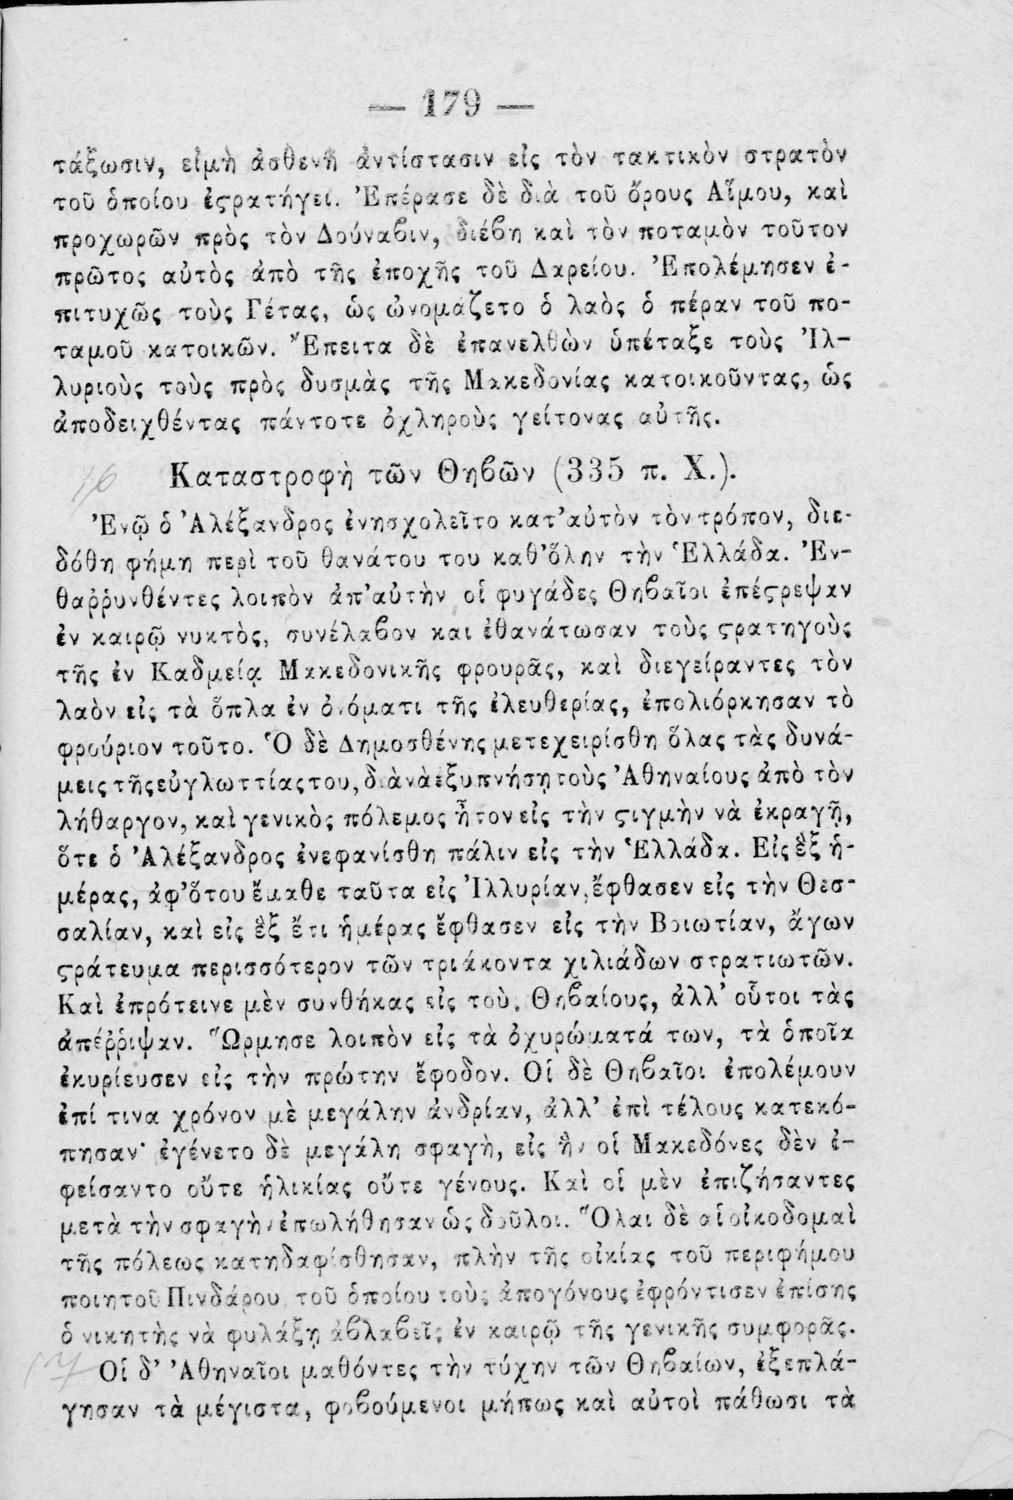 — 179 —
τάξωσιν, εἰμὴ ἀσθενῆ ἀντίστασιν εἰς τὸν τακτικὸν στρατὸν
τοῦ ὁποίου ἐϛρατήγει. Ἐπέρασε δὲ διὰ τοῦ ὄρους Αἵμου, καὶ
προχωρῶν πρὸς τὸν Δούναβιν, διέβη καὶ τὸν ποταμὸν τοῦτον
πρῶτος αὐτὸς ἀπὸ τῆς ἐποχῆς τοῦ Δαρείου. Ἐπολέμησεν ἐ-
πιτυχῶς τοὺς Γέτας, ὡς ὠνομάζετο ὁ λαὸς ὁ πέραν τοῦ πο-
ταμοῦ κατοικῶν. Ἔπειτα δὲ ἐπανελθὼν ὑπέταξε τοὺς Ἰλ-
λυριοὺς τοὺς πρὸς δυσμὰς τῆς Μακεδονίας κατοικοῦντας, ὡς
ἀποδειχθέντας πάντοτε ὀχληροὺς γείτονας αὐτῆς.
16 Καταστροφὴ τῶν Θηβῶν (335 π. Χ.).
Ἐνῷ ὁ Ἀλέξανδρος ἐνησχολεῖτο κατ' αὐτὸν τὸν τρόπον, διε-
δόθη φήμη περὶ τοῦ θανάτου του καθ' ὅλην τὴν Ἑλλάδα. Ἐν-
θαῤῥυνθέντες λοιπὸν ἀπ' αὐτὴν οἱ φυγάδες Θηβαῖοι ἐπέϛρεψαν
ἐν καιρῷ νυκτὸς, συνέλαβον και ἐθανάτωσαν τοὺς ϛρατηγοὺς
τῆς ἐν Καδμείᾳ Μακεδονικῆς φρουρᾶς, καὶ διεγείραντες τὸν
λαὸν εἰς τὰ ὅπλα ἐν ὀνόματι τῆς ἐλευθερίας, ἐπολιόρκησαν τὸ
φρούριον τοῦτο. Ὁ δὲ Δημοσθένης μετεχειρίσθη ὅλας τὰς δυνά-
μεις τῆς εὐγλωττίας του, διὰ νὰ ἐξυπνήσῃ τοὺς Ἀθηναίους ἀπὸ τὸν
λήθαργον, καὶ γενικὸς πόλεμος ἦτον εἰς τὴν ϛιγμὴν νὰ ἐκραγῇ,
ὅτε ὁ Ἀλέξανδρος ἐνεφανίσθη πάλιν εἰς τὴν Ἑλλάδα. Εἰς ἓξ ἡ-
μέρας, ἀφ' ὅτου ἔμαθε ταῦτα εἰς Ἰλλυρίαν, ἔφθασεν εἰς τὴν Θεσ-
σαλίαν, καὶ εἰς ἓξ ἔτι ἡμέρας ἔφθασεν εἰς τὴν Βοιωτίαν, ἄγων
ϛράτευμα περισσότερον τῶν τριάκοντα χιλιάδων στρατιωτῶν.
Καὶ ἐπρότεινε μὲν συνθήκας εἰς τοὺς Θηβαίους, ἀλλ' οὗτοι τὰς
ἀπέῤῥιψαν. Ὥρμησε λοιπὸν εἰς τὰ ὀχυρώματά των, τὰ ὁποῖα
ἐκυρίευσεν εἰς τὴν πρώτην ἔφοδον. Οἱ δὲ Θηβαῖοι ἐπολέμουν
ἐπί τινα χρόνον μὲ μεγάλην ἀνδρίαν, ἀλλ' ἐπὶ τέλους κατεκό-
πησαν· ἐγένετο δὲ μεγάλη σφαγὴ, εἰς ἣν οἱ Μακεδόνες δὲν ἐ-
φείσαντο οὔτε ἡλικίας οὔτε γένους. Καὶ οἱ μὲν ἐπιζήσαντες
μετὰ τὴν σφαγὴν ἐπωλήθησαν ὡς δοῦλοι. Ὅλαι δὲ αἱ οἰκοδομαὶ
τῆς πόλεως κατηδαφίσθησαν, πλὴν τῆς οἰκίας τοῦ περιφήμου
ποιητοῦ Πινδάρου, τοῦ ὁποίου τοὺς ἀπογόνους ἐφρόντισεν ἐπίσης
ὁ νικητὴς νὰ φυλάξῃ ἀβλαβεῖς ἐν καιρῷ τῆς γενικῆς συμφορᾶς.
17 Οἱ δ' Ἀθηναῖοι μαθόντες τὴν τύχην τῶν Θηβαίων, ἐξεπλά-
γησαν τὰ μέγιστα, φοβούμενοι μήπως καὶ αὐτοὶ πάθωσι τὰ